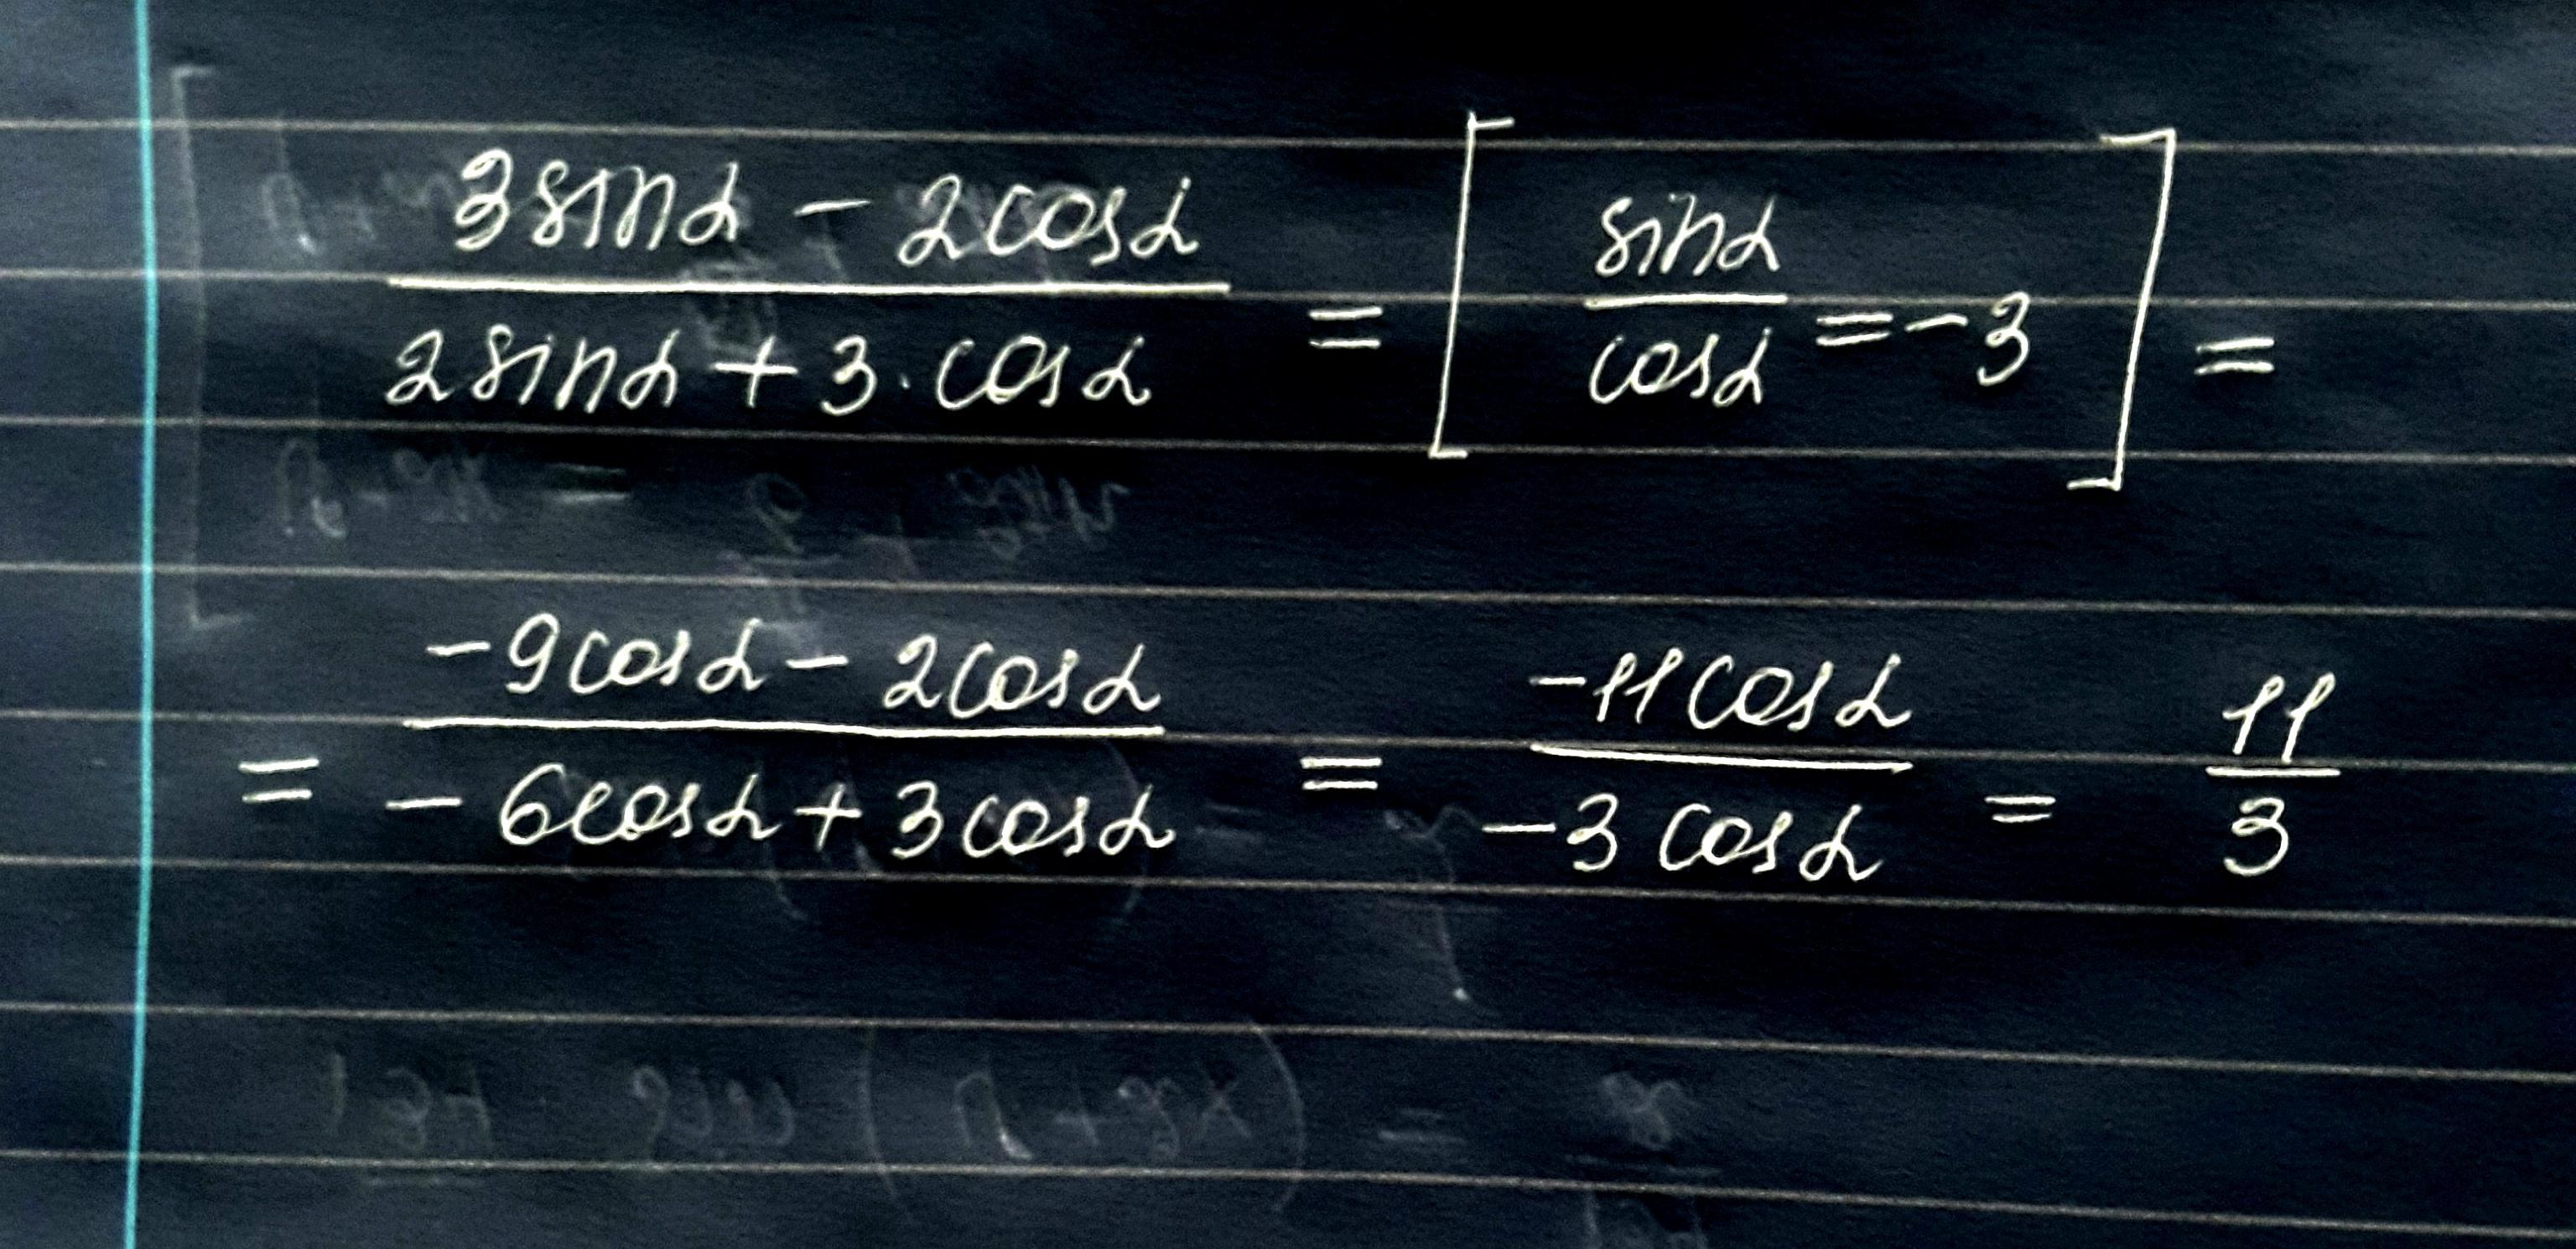 (3sinα - 2cosα)/(2sinα + 3·cosα) = [sinα/cosα = -3] =
= (-9cosα - 2cosα)/(-6cosα + 3cosα) = (-11cosα)/(-3cosα) = 11/3